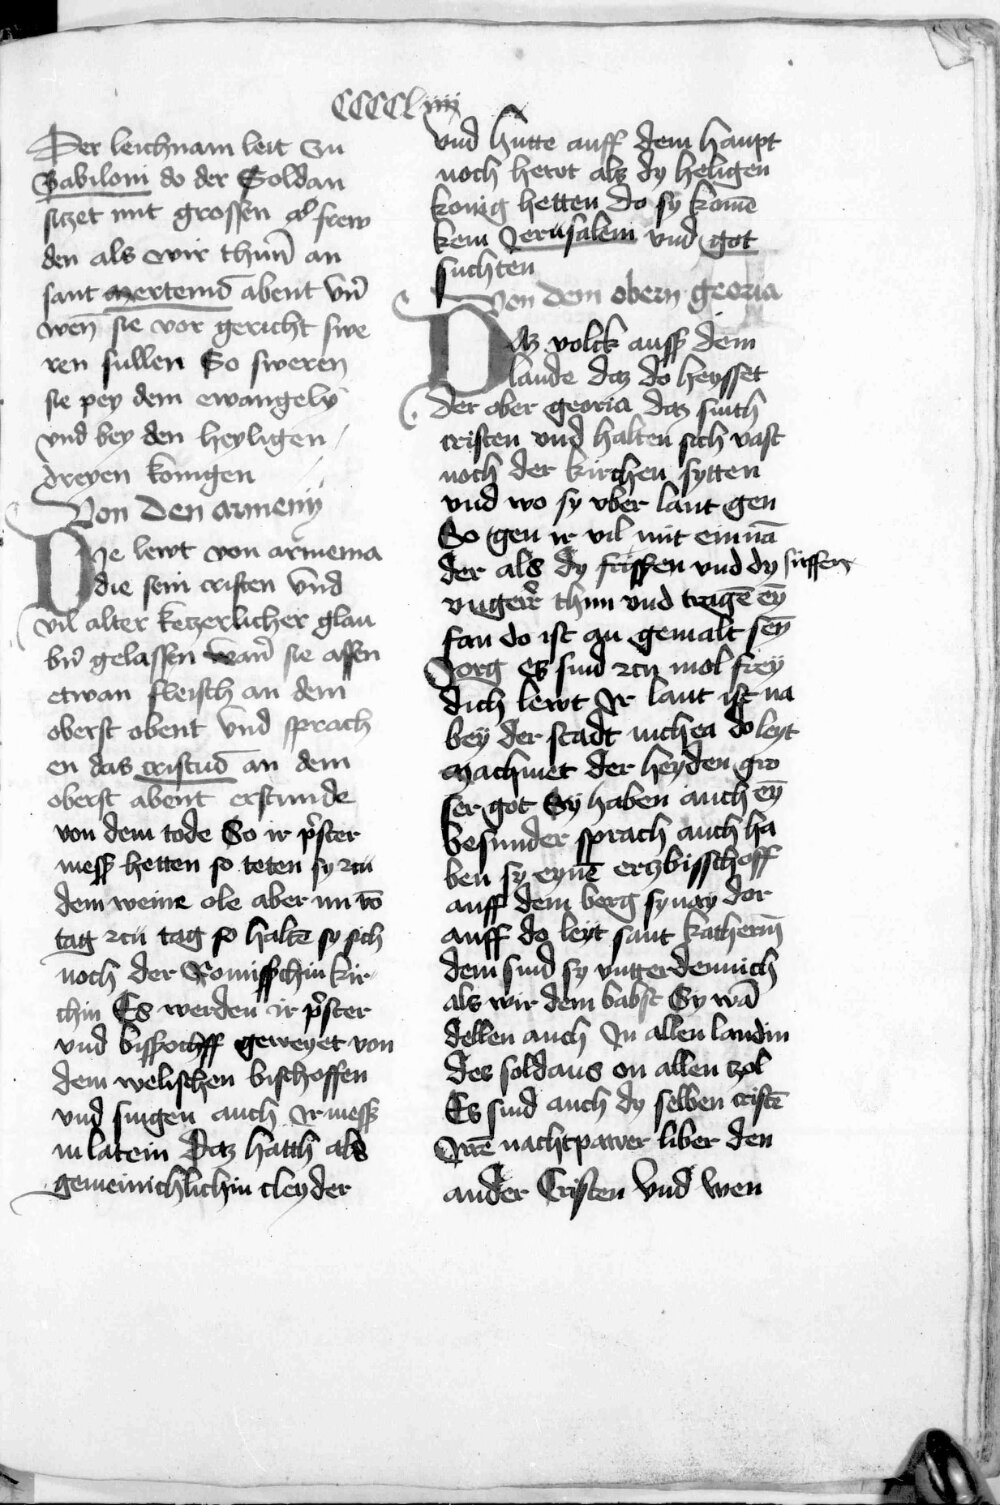 CCCCliiij
Der leichnam leit zu
Babiloni do der Soldan
siczet mit grossen al frew
den als wir thun̄ an
sant mertemd abent vn̄
wen̄ sie vor gericht swe
ren sullen So sweren
sie pey dem ewangely
vnd bey den heyligen
dreyen konigen
Von den armeny
DJe lewt von armenia
die sein cristen vnd
vil alter ketzerlicher glau
bn̄ gelassen wan̄ sie assen
etwan fleisch an dem
oberst obent vnd sprach
en das cristus an dem
oberst abent erstunde
von dem tode So ir p̄ster
mess hetten so teten sy zcu
dem weine ole aber nu vō
tag zcu tag so haltē sy sich
noch der Romisschin kir
chin Es werden ir p̄ster
vnd bisschoff geweyet von
dem welischen bischoffen
vnd singen auch ir mess
in latein Daz hatth als
gemeinichlichin cleyder
vnd hutte auff dem haupt
noch hewt als dy heligen
konig hetten do sy komē
kein Jerusalem vnd got
suchten
Von dem obern georia
Daz volck auss dem
lande daz do heysset
der ober georia daz sinth
cristen vnd halten sich vast
noch der kirchen sytten
vnd wo sy vber lant gen
So gen ir vil mit einnā
der als dy frissen vnd dy
vngerr̄ thun vnd tragē eȳ
fan do ist an gemalt seȳ
Jorg Es sind zcu mol frey
dich lewt Ir lant ist na
bey der stadt michea do leyt
Machmet der heyden gro
ser got Sy haben auch eȳ
besunder sprach auch ha
ben sy eynē erczbisschoff
auff dem berg synay dor
auff do leyt sant katherin̄
dem sind sy vntterdennich
als wir dem babst Sy wā
dellen auch Jn allen landin
des soldans on allen zol
Es sind auch dy selben cristē
Jrē nachtpawer liber den
ander Cristen Vnd wen